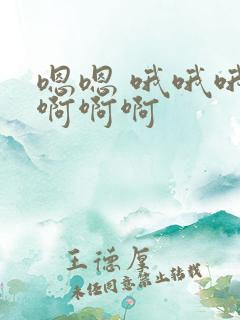 嗯嗯 哦哦哦
啊啊啊
王德厚
未经同意禁止转载